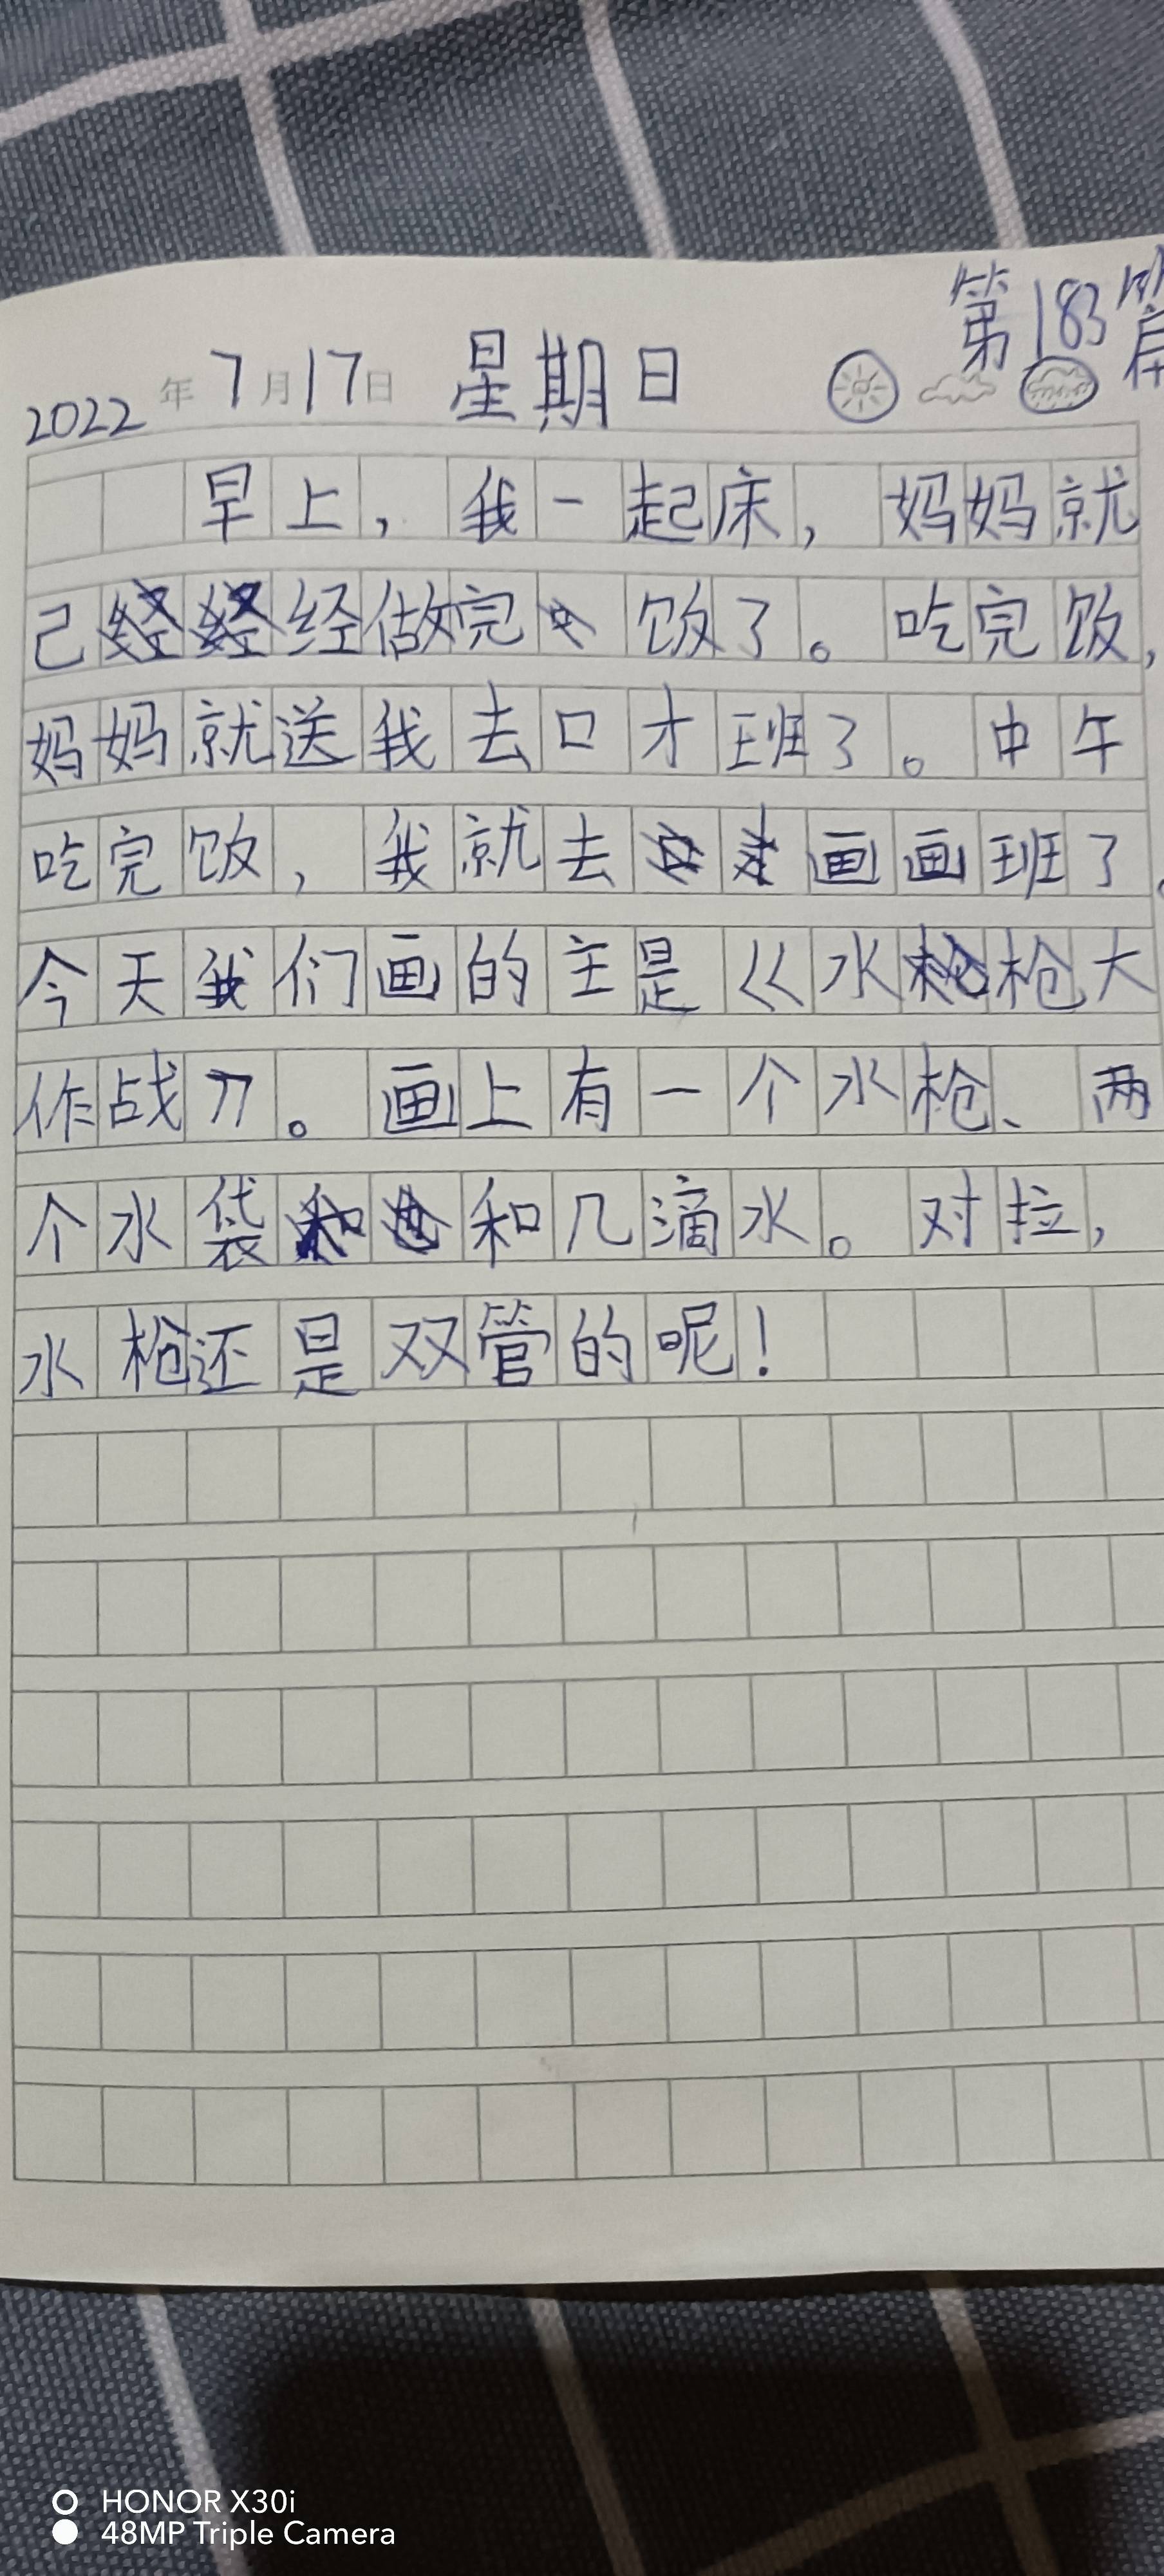 第183篇
2022年7月17日 星期日
早上，我一起床，妈妈就
己经做完饭了。吃完饭，
妈妈就送我去口才班了。中午
吃完饭，我就去画画班了。
今天我们画的主是《水枪大
作战》。画上有一个水枪、两
个水袋和几滴水。对拉，
水枪还是双管的呢！
HONOR X30i
48MP Triple Camera